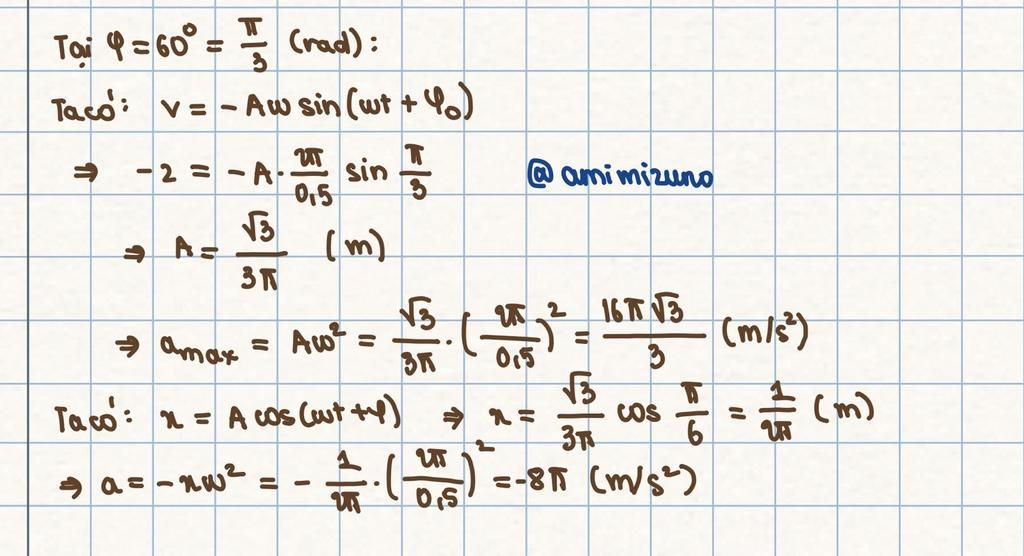 Tại φ = 60⁰ = π/3 (rad):
Ta có: v = - Aω sin(ωt + φ₀)
⇒ -2 = - A · 2π/0,5 sin π/3
@amimizuno
⇒ A = √3/3π (m)
⇒ amax = Aω² = √3/3π · (2π/0,5)² = 16π√3/3 (m/s²)
Ta có: x = A cos(ωt + φ) ⇒ x = √3/3π cos π/6 = 1/2π (m)
⇒ a = -xω² = - 1/2π · (2π/0,5)² = -8π (m/s²)